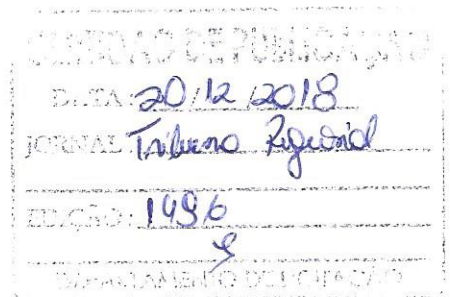 CERTIDÃO DE PUBLICAÇÃO
DATA: 20/12/2018
JORNAL: Tribuna Regional
EDIÇÃO: 1496
DEPARTAMENTO DE LICITAÇÃO